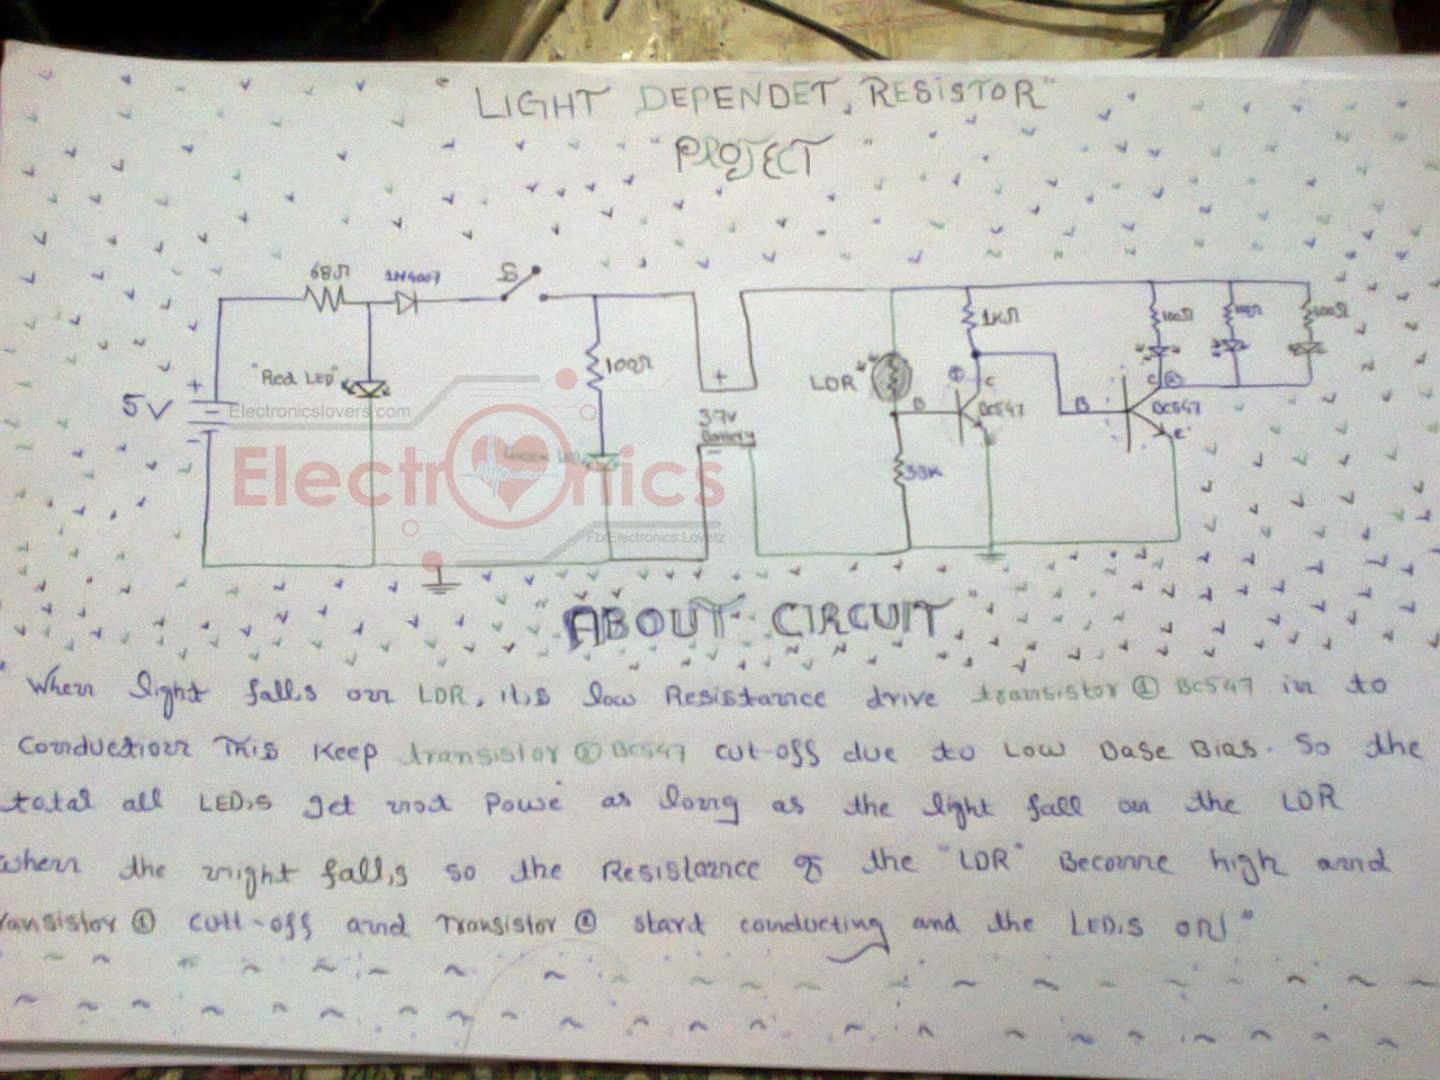 "LIGHT DEPENDET, RESISTOR"
"PROJECT"
68Ω
1N4007
S
"Red LED"
+
5V
-
100Ω
+
3.7v
Battery
-
LDR
1KΩ
①
C
B
BC547
33K
100Ω
100Ω
C
②
B
BC547
E
Electronicslovers.com
Electronics
Fb/Electronics.Loverz
ABOUT CIRCUIT
"When light falls on LDR, it,s low Resistance drive transistor ① BC547 in to
Conduction This Keep transistor ② BC547 cut-off due to Low Base Bias. So the
total all LED,s get not Powe as long as the light fall on the LDR
when the night fall,s so the Resistance of the "LDR" Become high and
ransistor ① cutt-off and Transistor ② start conducting and the LED,S ON"